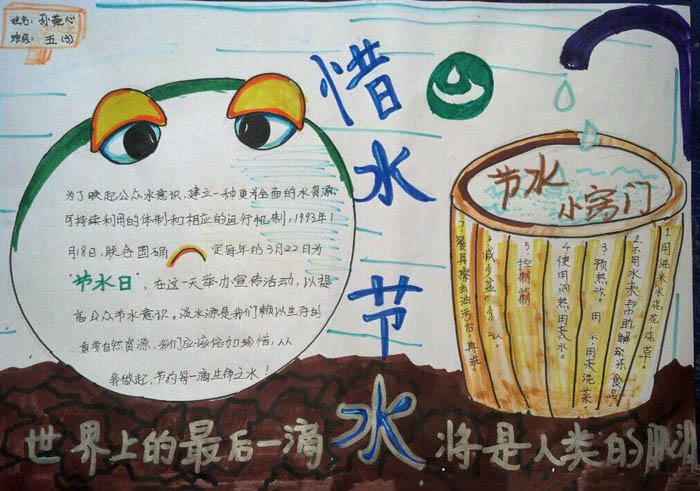 姓名：孙苑心
班级：五(3)
惜水节水
为了唤起公众水意识，建立一种更为全面的水资源
可持续利用的体制和相应的运行机制，1993年1
月18日，联合国确定每年的3月22日为
"节水日"，在这一天举办宣传活动，以提
高公众节水意识。淡水源是我们赖以生存的
重要自然资源，我们应该倍加珍惜，从
我做起，节约每一滴生命之水！
节水
小窍门
1.用洗米水浇花浇草。
2.不用水来帮助解冻食
3.预热放 用 用来洗菜
4.使用闷热用表水。
5.控制
减少盆
餐具擦去油污后再洗
世界上的最后一滴水将是人类的眼泪